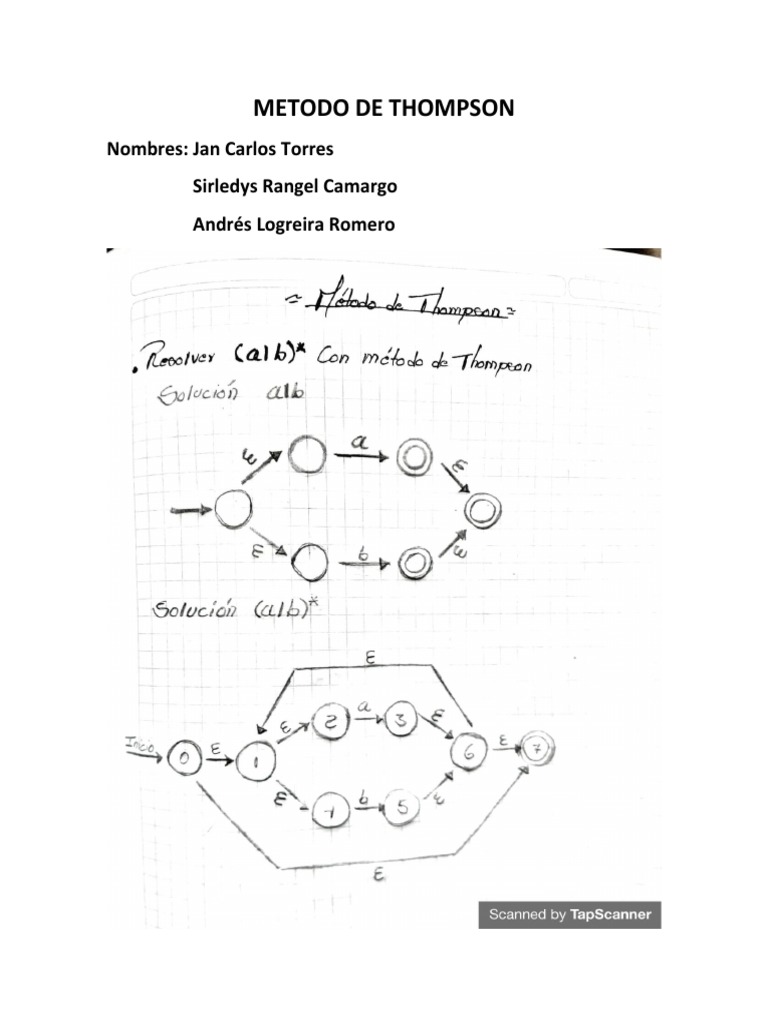 METODO DE THOMPSON
Nombres: Jan Carlos Torres
Sirledys Rangel Camargo
Andrés Logreira Romero
~ Método de Thompson ~
. Resolver (a|b)* Con método de Thompson
Solución a|b
ε a ε
ε b ε
Solución (a|b)*
ε
ε 2 a 3 ε
Inicio 0 ε 1 6 ε 7
ε 4 b 5 ε
ε
Scanned by TapScanner